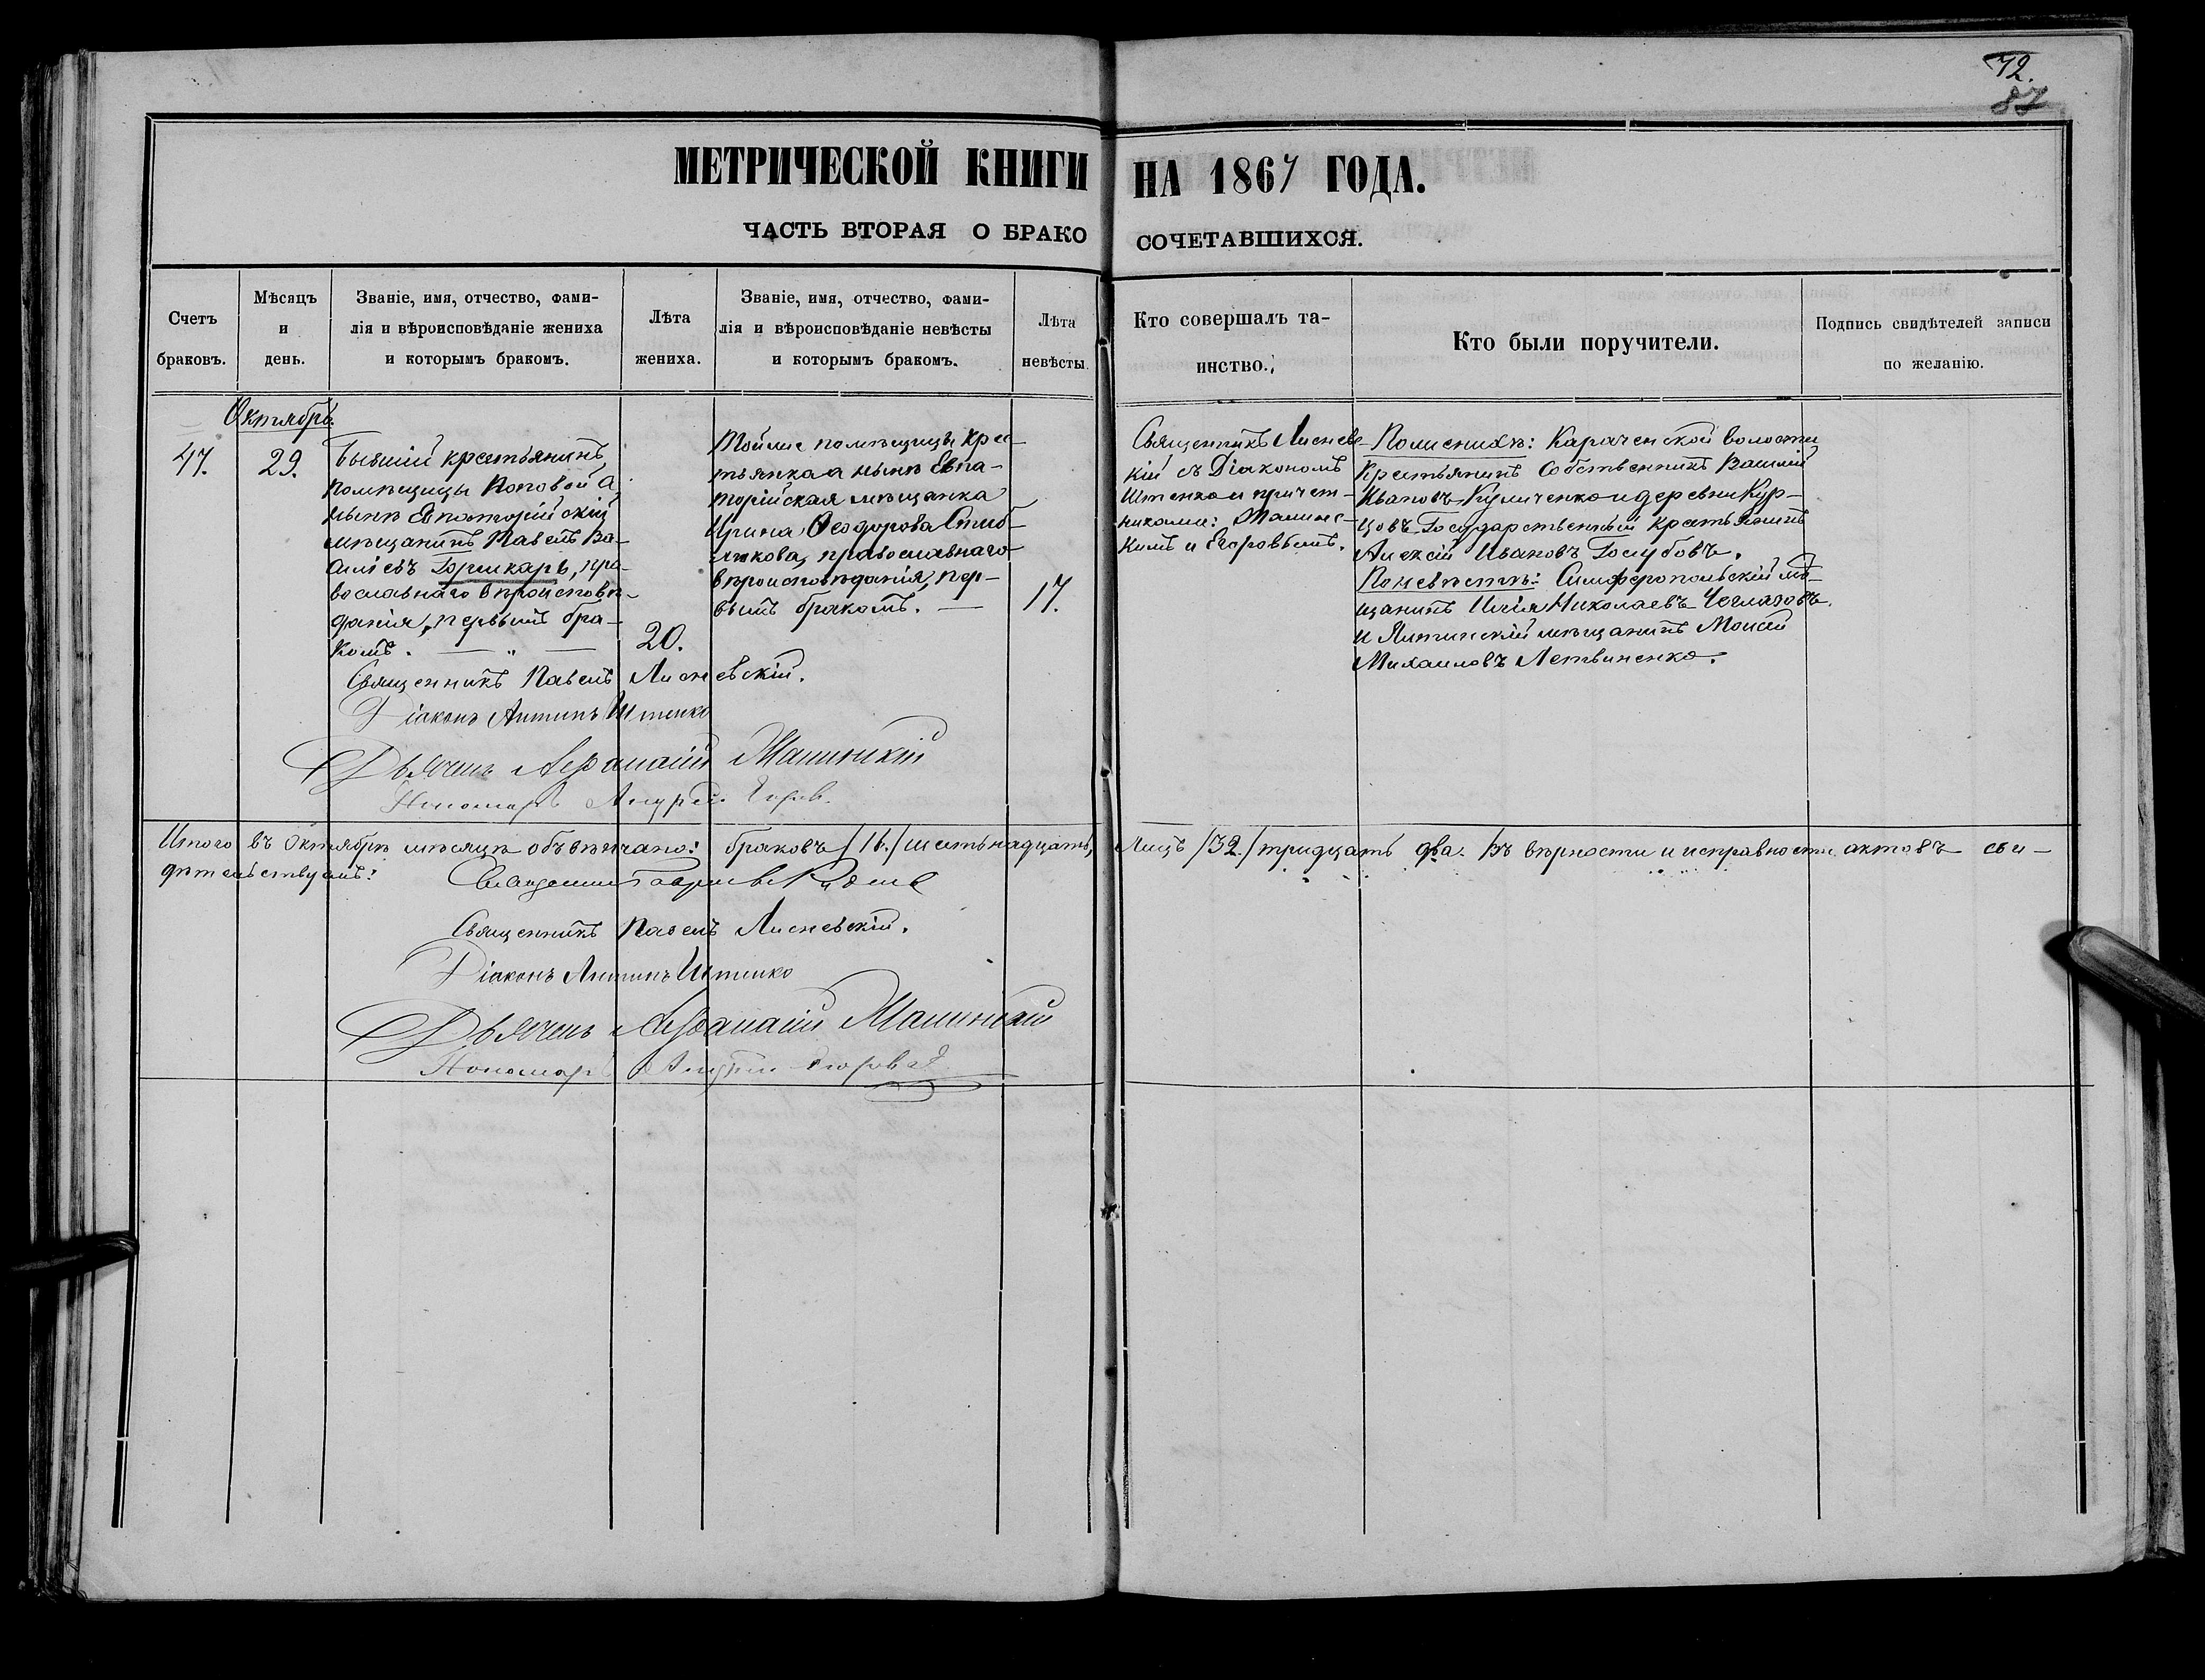 72.
87
МЕТРИЧЕСКОЙ КНИГИ НА 1867 ГОДА.
ЧАСТЬ ВТОРАЯ О БРАКОСОЧЕТАВШИХСЯ.
Счетъ
браковъ.
Мѣсяцъ
и
день.
Званіе, имя, отчество, фами-
лія и вѣроисповѣданіе жениха
и которымъ бракомъ.
Лѣта
жениха.
Званіе, имя, отчество, фами-
лія и вѣроисповѣданіе невѣсты
и которымъ бракомъ.
Лѣта
невѣсты.
Кто совершалъ та-
инство.
Кто были поручители.
Подпись свидѣтелей записи
по желанію.
Октябрь.
47.
29.
Бывшій крестьянинъ
помѣщицы Поповой а
нынѣ Евпаторійскій
мѣщанинъ Павелъ Ва-
силіевъ Горшкарь, пра-
вославнаго вѣроисповѣ-
данія, первымъ бра-
комъ. — " —
20.
Тойже помѣщицы крес-
тьянка а нынѣ Евпа-
торійская мѣщанка
Ирина Ѳеодорова
православнаго
вѣроисповѣданія, пер-
вымъ бракомъ. —
17.
Священникъ Лиснев-
кій съ Діакономъ
Штенко и причет-
никами: Малинс-
кимъ и Егоровымъ.
По женихѣ: Карачекской волости
крестьянинъ собственникъ Василій
Ивановъ Куличенко и деревни Кур-
цовъ Государственный крестьянинъ
Алексѣй Ивановъ Голубовъ.
По невѣстѣ: Симферопольскій мѣ-
щанинъ Илія Николаевъ
и Ялтинскій мѣщанинъ Моисей
Михаиловъ Летвиненко.
Священникъ Павелъ Лисневскій.
Діаконъ Антипъ Штенко
Дьячекъ Афанасій Малинскій
Пономарь Андрей Егоров.
Итого въ Октябрѣ мѣсяцѣ обвѣнчано: браковъ /16./ шестьнадцать, лицъ /32./ тридцать два. Въ вѣрности и исправности актовъ сви-
дѣтельствуемъ: Священникъ
Священникъ Павелъ Лисневскій.
Діаконъ Антипъ Штенко
Дьячекъ Афанасій Малинскій
Пономарь Андрей Егоровъ